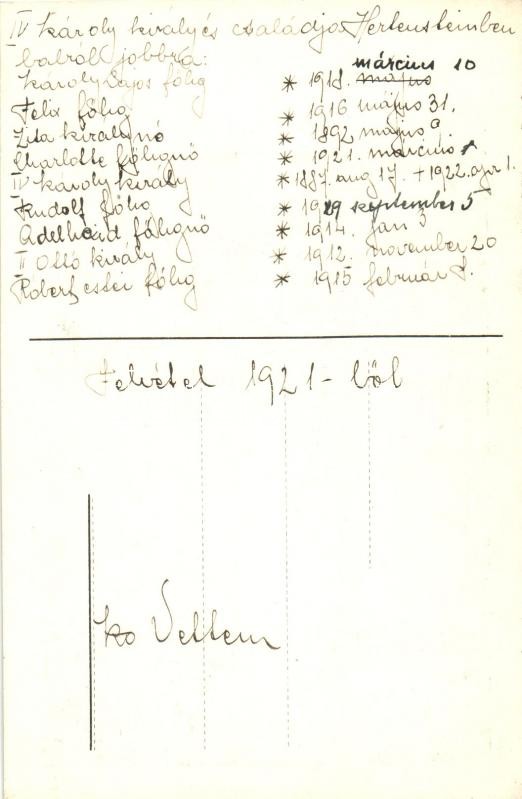 IV Károly király és családja Hertensteinben
balról jobbra:
Károly Lajos főhg * 1918. május március 10
Felix főhg * 1916 május 31.
Zita királynő * 1892 május 9.
Charlotte főhgnő * 1921. március 1
IV Károly király * 1887. aug 17. + 1922. apr 1.
Rudolf főhg * 1919 szeptember 5
Adelheid főhgnő * 1914. jan 3
II Ottó király * 1912. november 20
Robert estei főhg * 1915 február 8.
Felvétel 1921-ből
Vettem